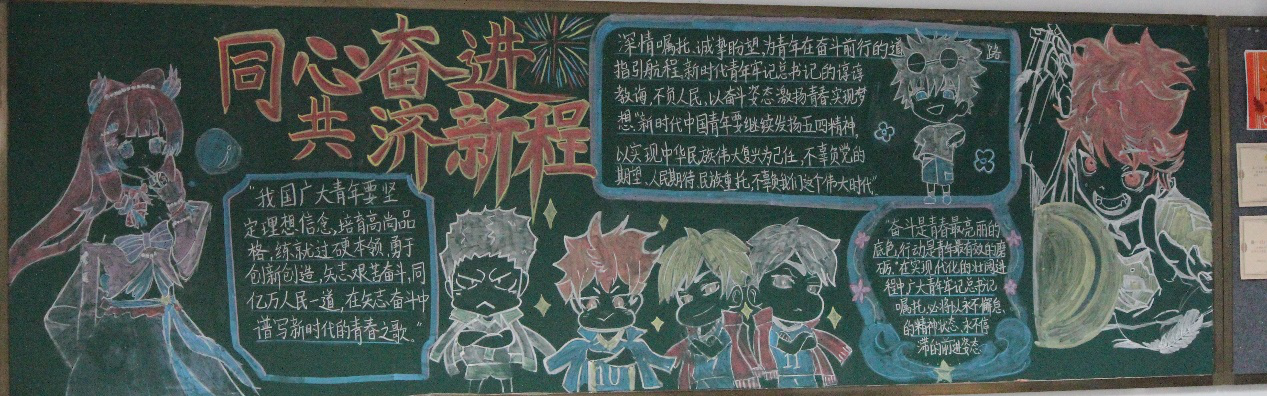 同心奋进
共济新程
深情嘱托、诚挚盼望,为青年在奋斗前行的道路
指引航程,新时代青年牢记总书记的谆谆
教诲,不负人民,以奋斗姿态激扬青春,实现梦
想"新时代中国青年要继续发扬五四精神,
以实现中华民族伟大复兴为己任,不辜负党的
期望、人民期待、民族重托,不辜负我们这个伟大时代."
"我国广大青年要坚
定理想信念,培育高尚品
格,练就过硬本领,勇于
创新创造,矢志艰苦奋斗,同
亿万人民一道,在矢志奋斗中
谱写新时代的青春之歌."
"奋斗是青春最亮丽的
底色,行动是青年最有效的磨
砺."在实现代化的壮阔进
程中广大青年记总书记
嘱托,必将以永不懈怠,
的精神状态,永不停
滞的前进姿态
10
11